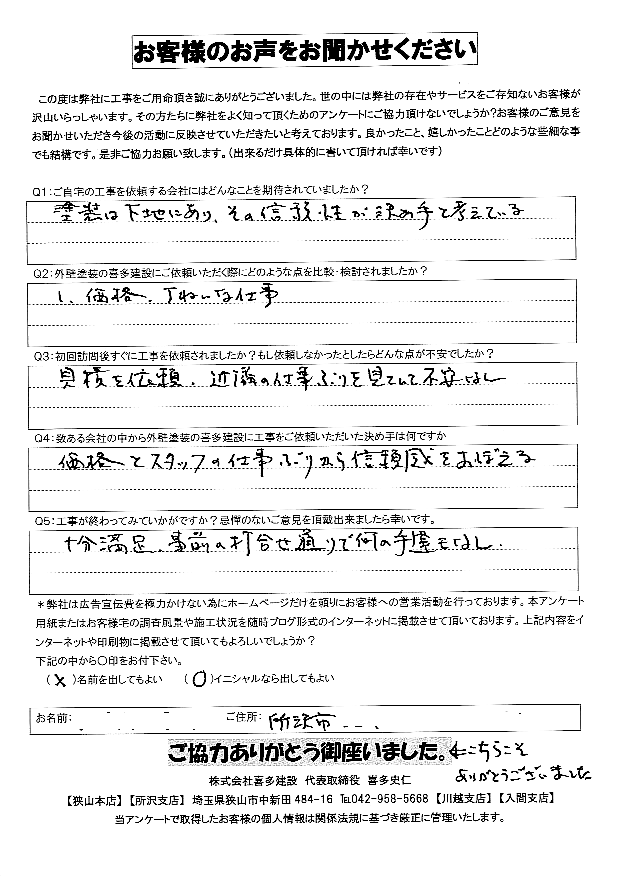 お客様のお声をお聞かせください
この度は弊社に工事をご用命頂き誠にありがとうございました。世の中には弊社の存在やサービスをご存知ないお客様が
沢山いらっしゃいます。その方たちに弊社をよく知って頂くためのアンケートにご協力頂けないでしょうか?お客様のご意見を
お聞かせいただき今後の活動に反映させていただきたいと考えております。良かったこと、嬉しかったことどのような些細な事
でも結構です。是非ご協力お願い致します。(出来るだけ具体的に書いて頂ければ幸いです)
Q1:ご自宅の工事を依頼する会社にはどんなことを期待されていましたか?
塗装は下地にあり、その信頼性が決め手と考えている
Q2:外壁塗装の喜多建設にご依頼いただく際にどのような点を比較・検討されましたか?
1、価格、丁ねいな仕事
Q3:初回訪問後すぐに工事を依頼されましたか?もし依頼しなかったとしたらどんな点が不安でしたか?
見積を依頼、近隣の仕事ぶりを見ていて不安なし
Q4:数ある会社の中から外壁塗装の喜多建設に工事をご依頼いただいた決め手は何ですか
価格とスタッフの仕事ぶりから信頼感をおぼえる
Q5:工事が終わってみていかがですか?忌憚のないご意見を頂戴出来ましたら幸いです。
十分満足、事前の打合せ通りで何の手違もなし.
*弊社は広告宣伝費を極力かけない為にホームページだけを頼りにお客様への営業活動を行っております。本アンケート
用紙またはお客様宅の調査風景や施工状況を随時ブログ形式のインターネットに掲載させて頂いております。上記内容をイ
ンターネットや印刷物に掲載させて頂いてもよろしいでしょうか?
下記の中から〇印をお付下さい。
(×)名前を出してもよい (〇)イニシャルなら出してもよい
お名前: ご住所: 所沢市
ご協力ありがとう御座いました。←こちらこそ
ありがとうございました
株式会社喜多建設 代表取締役 喜多史仁
【狭山本店】【所沢支店】 埼玉県狭山市中新田484-16 ℡042-958-5668 【川越支店】【入間支店】
当アンケートで取得したお客様の個人情報は関係法規に基づき厳正に管理いたします。